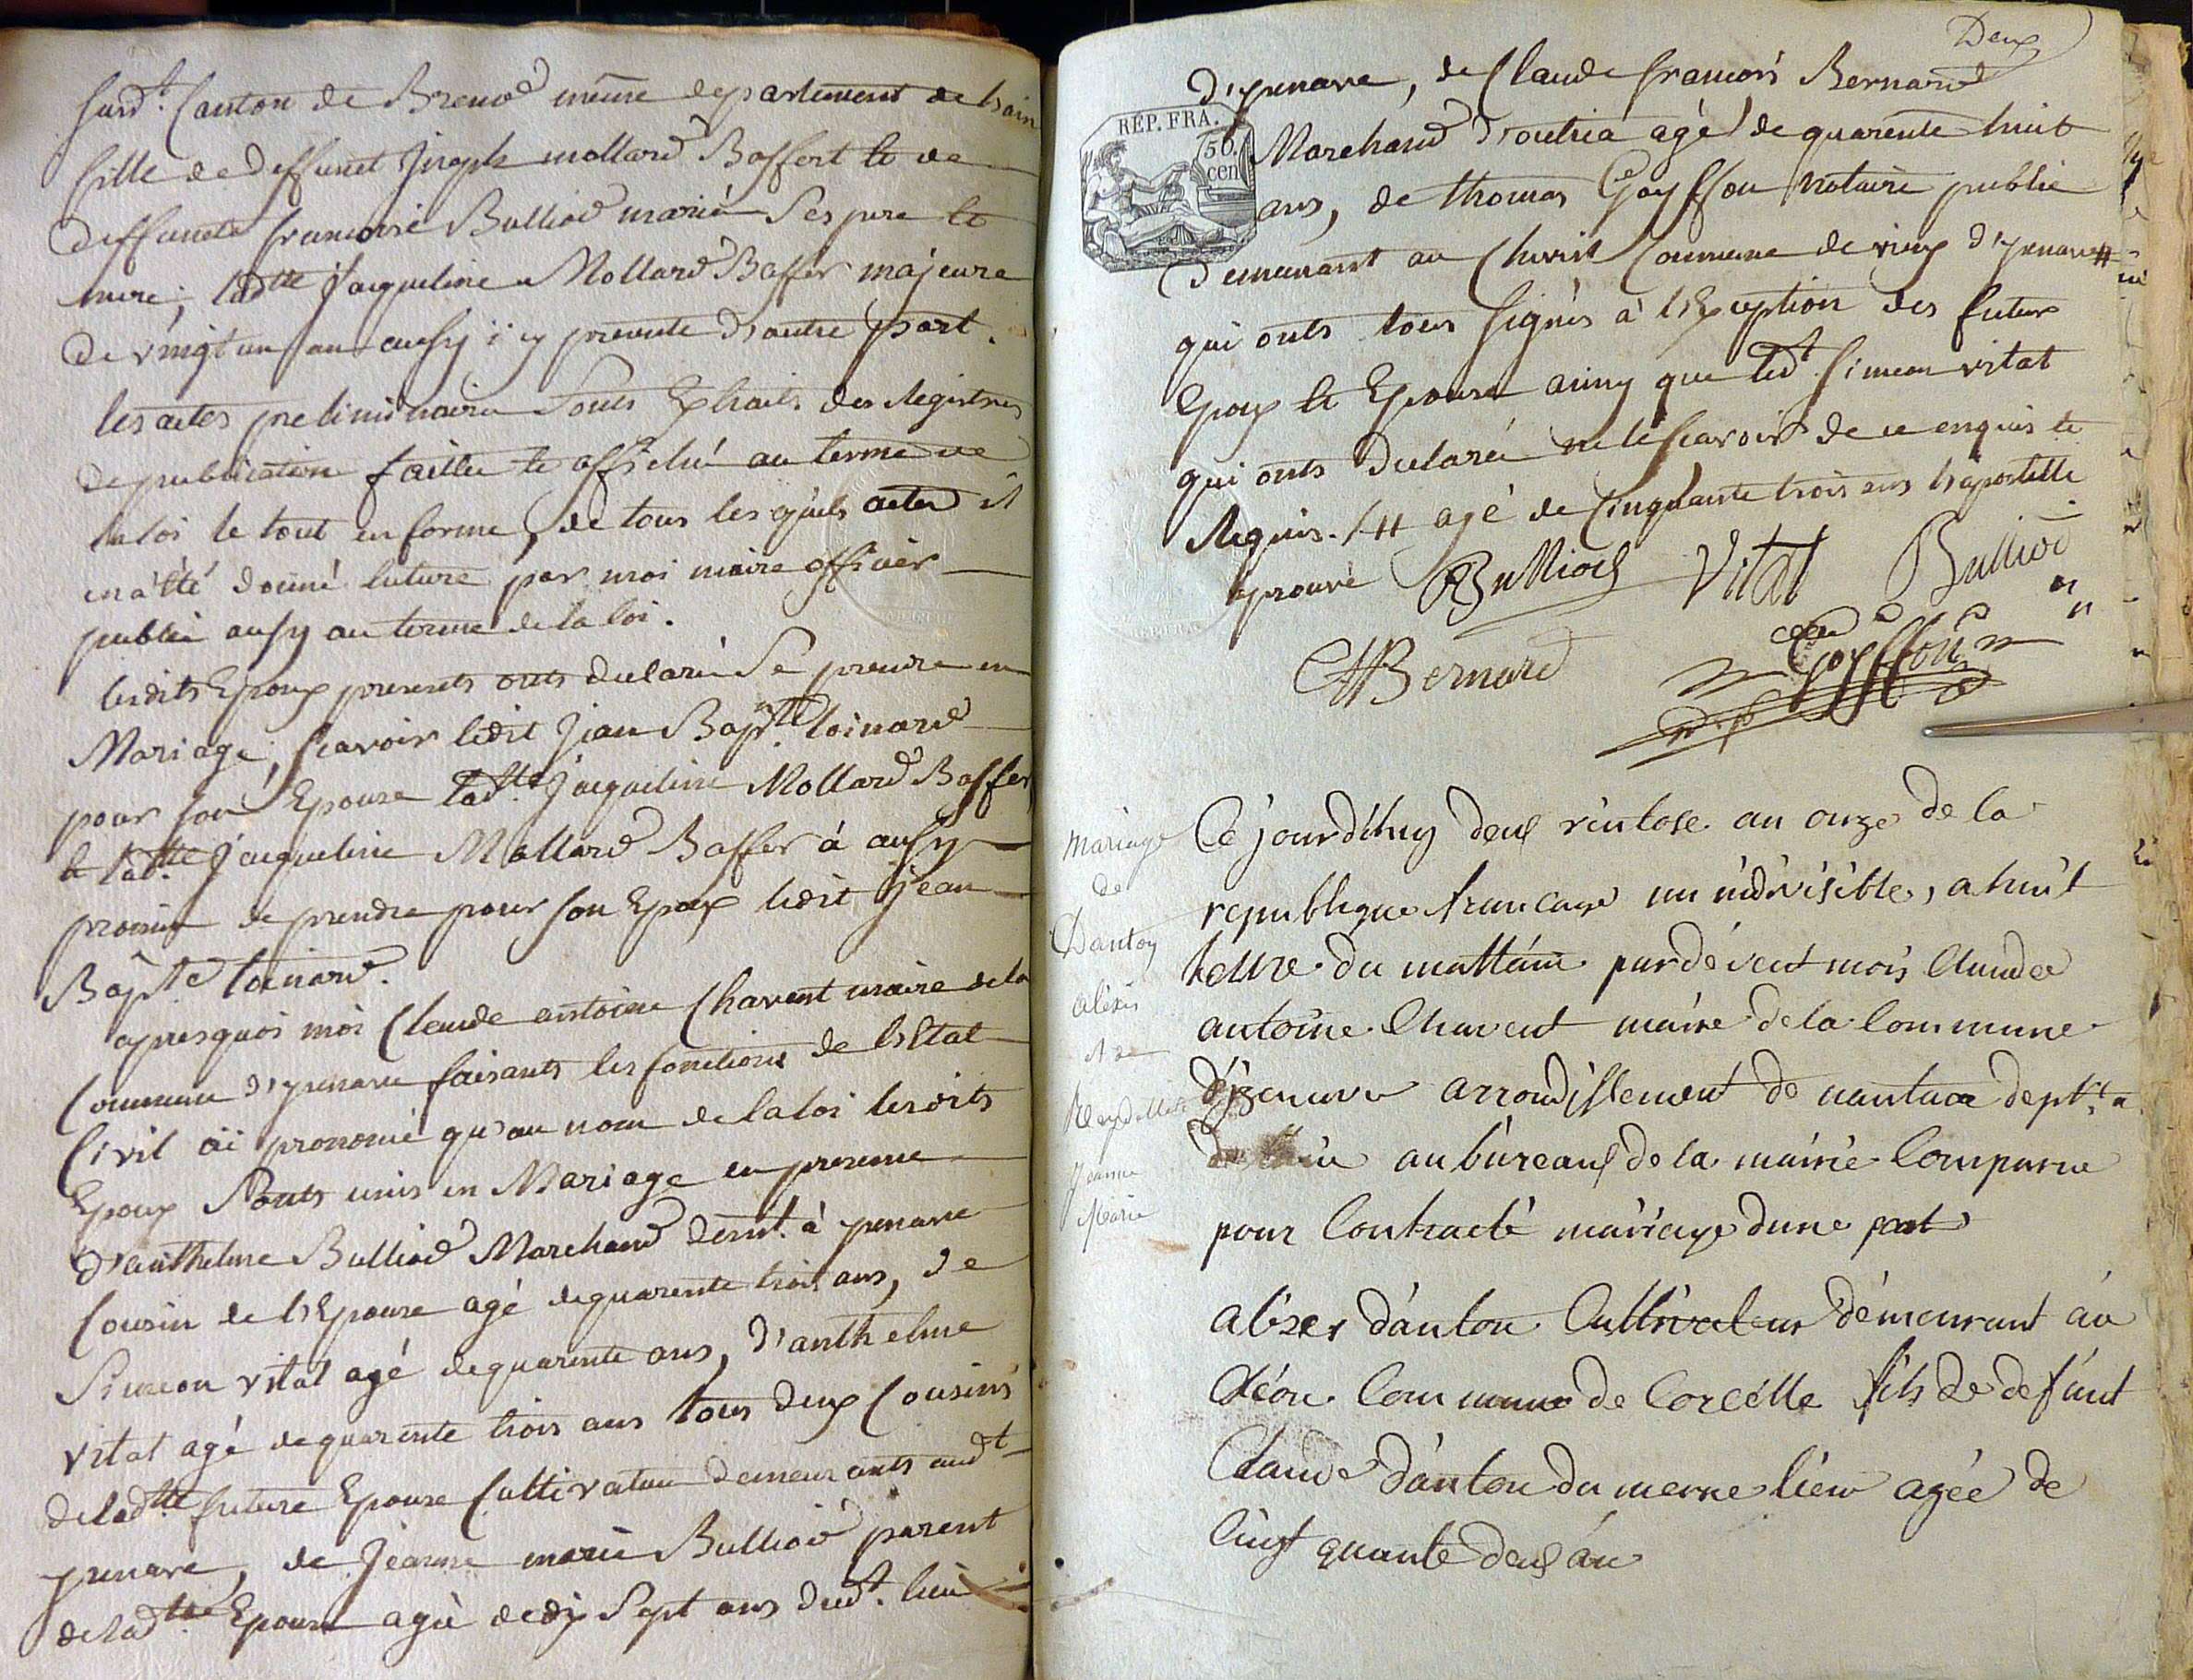 surd.t Canton de Brenod même departement de lain
fille de deffunct Joseph mollard Baffert et de
deffuncte francoise Bulliod mariés Ses pere et
mere; ladtte Jacqueline Mollard Baffer majeure
de vingt un an aussy i cy presente d'autre part.
les actes preliminaire Sonts Extraits des Registres
de publication faittes et affiché au terme de
la loi le tout en forme, de tous les quels actes il
en a été donné lecture par moi maire officier
public aussy au terme de la loi.
lesdits Epoux presents onts declaré Se prendre en
Mariage, scavoir ledit Jean Bap.te loinard
pour son Epouse ladtte Jacqueline Mollard Baffer
et ladtte Jacqueline Mollard Baffer à aussy
promis de prendre pour son Epoux ledit Jean
Bapte loinard.
apresquoi moi Claude antoine Charvent maire de la
Commune d'yzenave faisants les fonctions de l'Etat
Civil ai prononcé qu'au nom de la loi lesdits
Epoux Sonts unis en Mariage en presence
d'anthelme Bulliod Marchand demt. à yzenave
Cousin de l'Epouse agé de quarente trois ans, de
Simeon vital agé de quarente ans, d'anthelme
vital agé de quarente trois ans tous deux Cousins
de ladtte future Epouse Cultivateur demeurants aud.t
yzenave, de Jeanne marie Bulliod parent
de ladtte Epouse agé de dix Sept ans dud.t lieu
Deux
d'yzenave, de Claude francois Bernard
REP. FRA.
50.
cen
Marchand d'outria agé de quarente huit
ans, de thomas Goyffon Notaire public
demeurant au Chevril Commune de vieux d'yzenave #
qui onts tous signés à l'Exception des futur
Epoux et Epouse ainsy que led.t Simeon vital
qui onts declaré ne le scavoir de ce enquis et
Requis. / # agé de Cinquante trois ans l'apostille
aprouvé Bulliod Vital Bulliod
CfBernard Goyffon
mariage
de
Danton
alexis
et de
Jeanne
Marie
Ce jourd'huy deux vintose an onze de la
republique francaise un indivisible, a huit
heure du mattain pardevent mois Claude
antoine Charvent maire de la Commune
d'izenave arrondissement de nantua dept.t
au bureaux de la mairie Comparue
pour Contracté mariage dune part
alixer d'anton Cultivateur demeurant au
Commune de Corcelle fils de defunt
Claude d'anton du meme lieu agée de
Cinst quante deux an